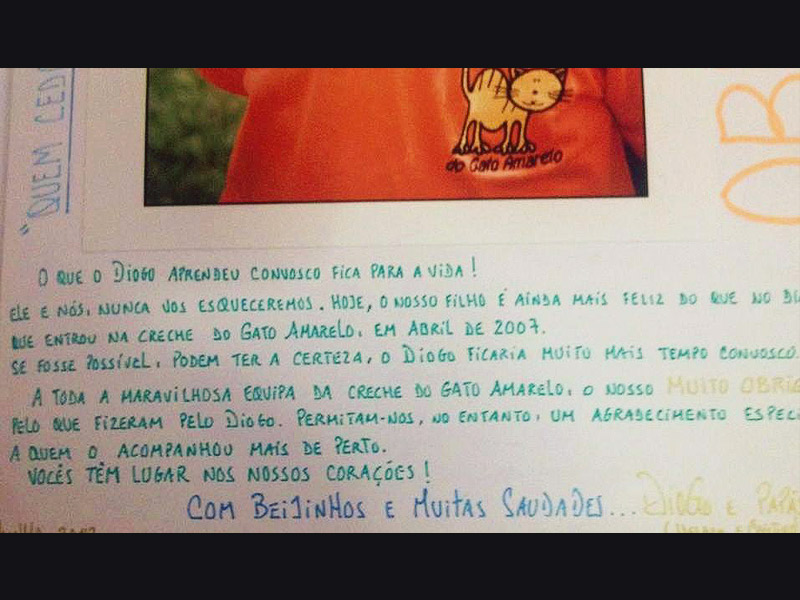 "QUEM CED
OB
do Gato Amarelo
O QUE O DIOGO APRENDEU CONVOSCO FICA PARA A VIDA!
ELE E NÓS, NUNCA VOS ESQUECEREMOS. HOJE, O NOSSO FILHO É AINDA MAIS FELIZ DO QUE NO DI
QUE ENTROU NA CRECHE DO GATO AMARELO, EM ABRIL DE 2007.
SE FOSSE POSSÍVEL, PODEM TER A CERTEZA, O DIOGO FICARIA MUITO MAIS TEMPO CONVOSCO.
A TODA A MARAVILHOSA EQUIPA DA CRECHE DO GATO AMARELO, O NOSSO MUITO OBRIG
PELO QUE FIZERAM PELO DIOGO. PERMITAM-NOS, NO ENTANTO, UM AGRADECIMENTO ESPECI
A QUEM O ACOMPANHOU MAIS DE PERTO.
VOCÊS TÊM LUGAR NOS NOSSOS CORAÇÕES!
COM BEIJINHOS E MUITAS SAUDADES... DIOGO E PAPÁS